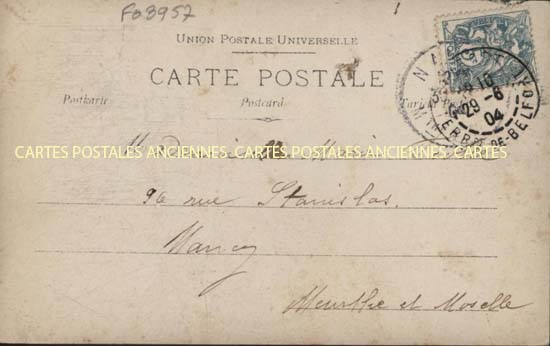 Fo3957
UNION POSTALE UNIVERSELLE
CARTE POSTALE
Postkarte Postcard
29-6
04
DE BELFORT
CARTES POSTALES ANCIENNES CARTES POSTALES ANCIENNES CARTES
96 rue Stanislas.
Nancy
Meurthe et Moselle